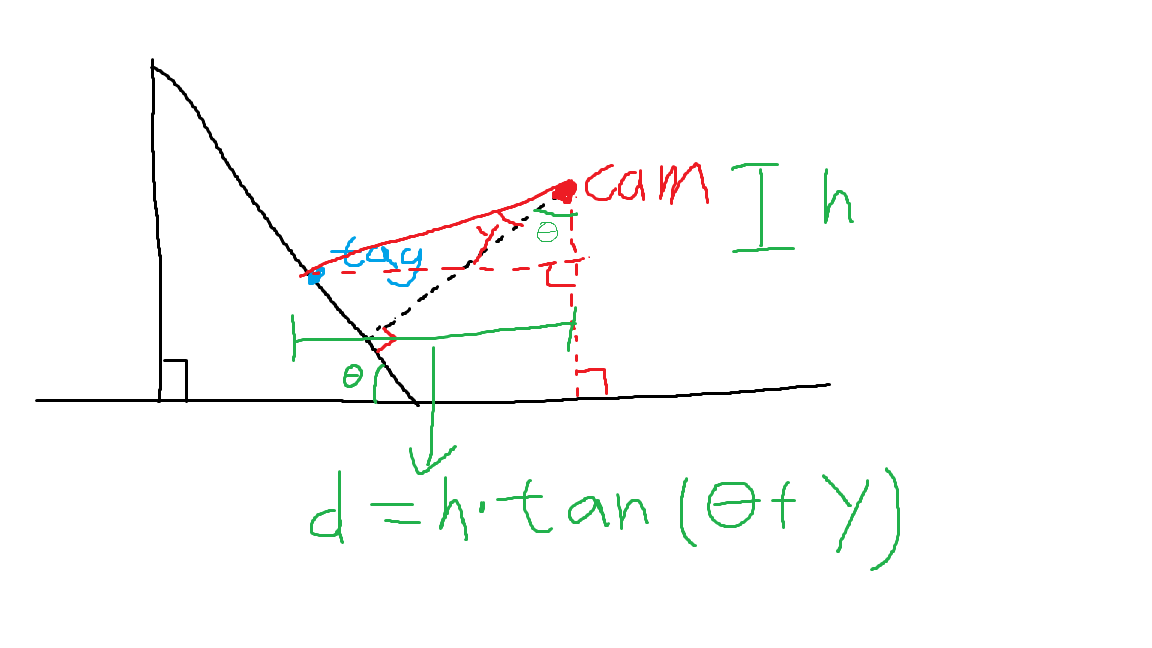 cam
h
θ
tag
y
θ
d = h·tan(θ+y)